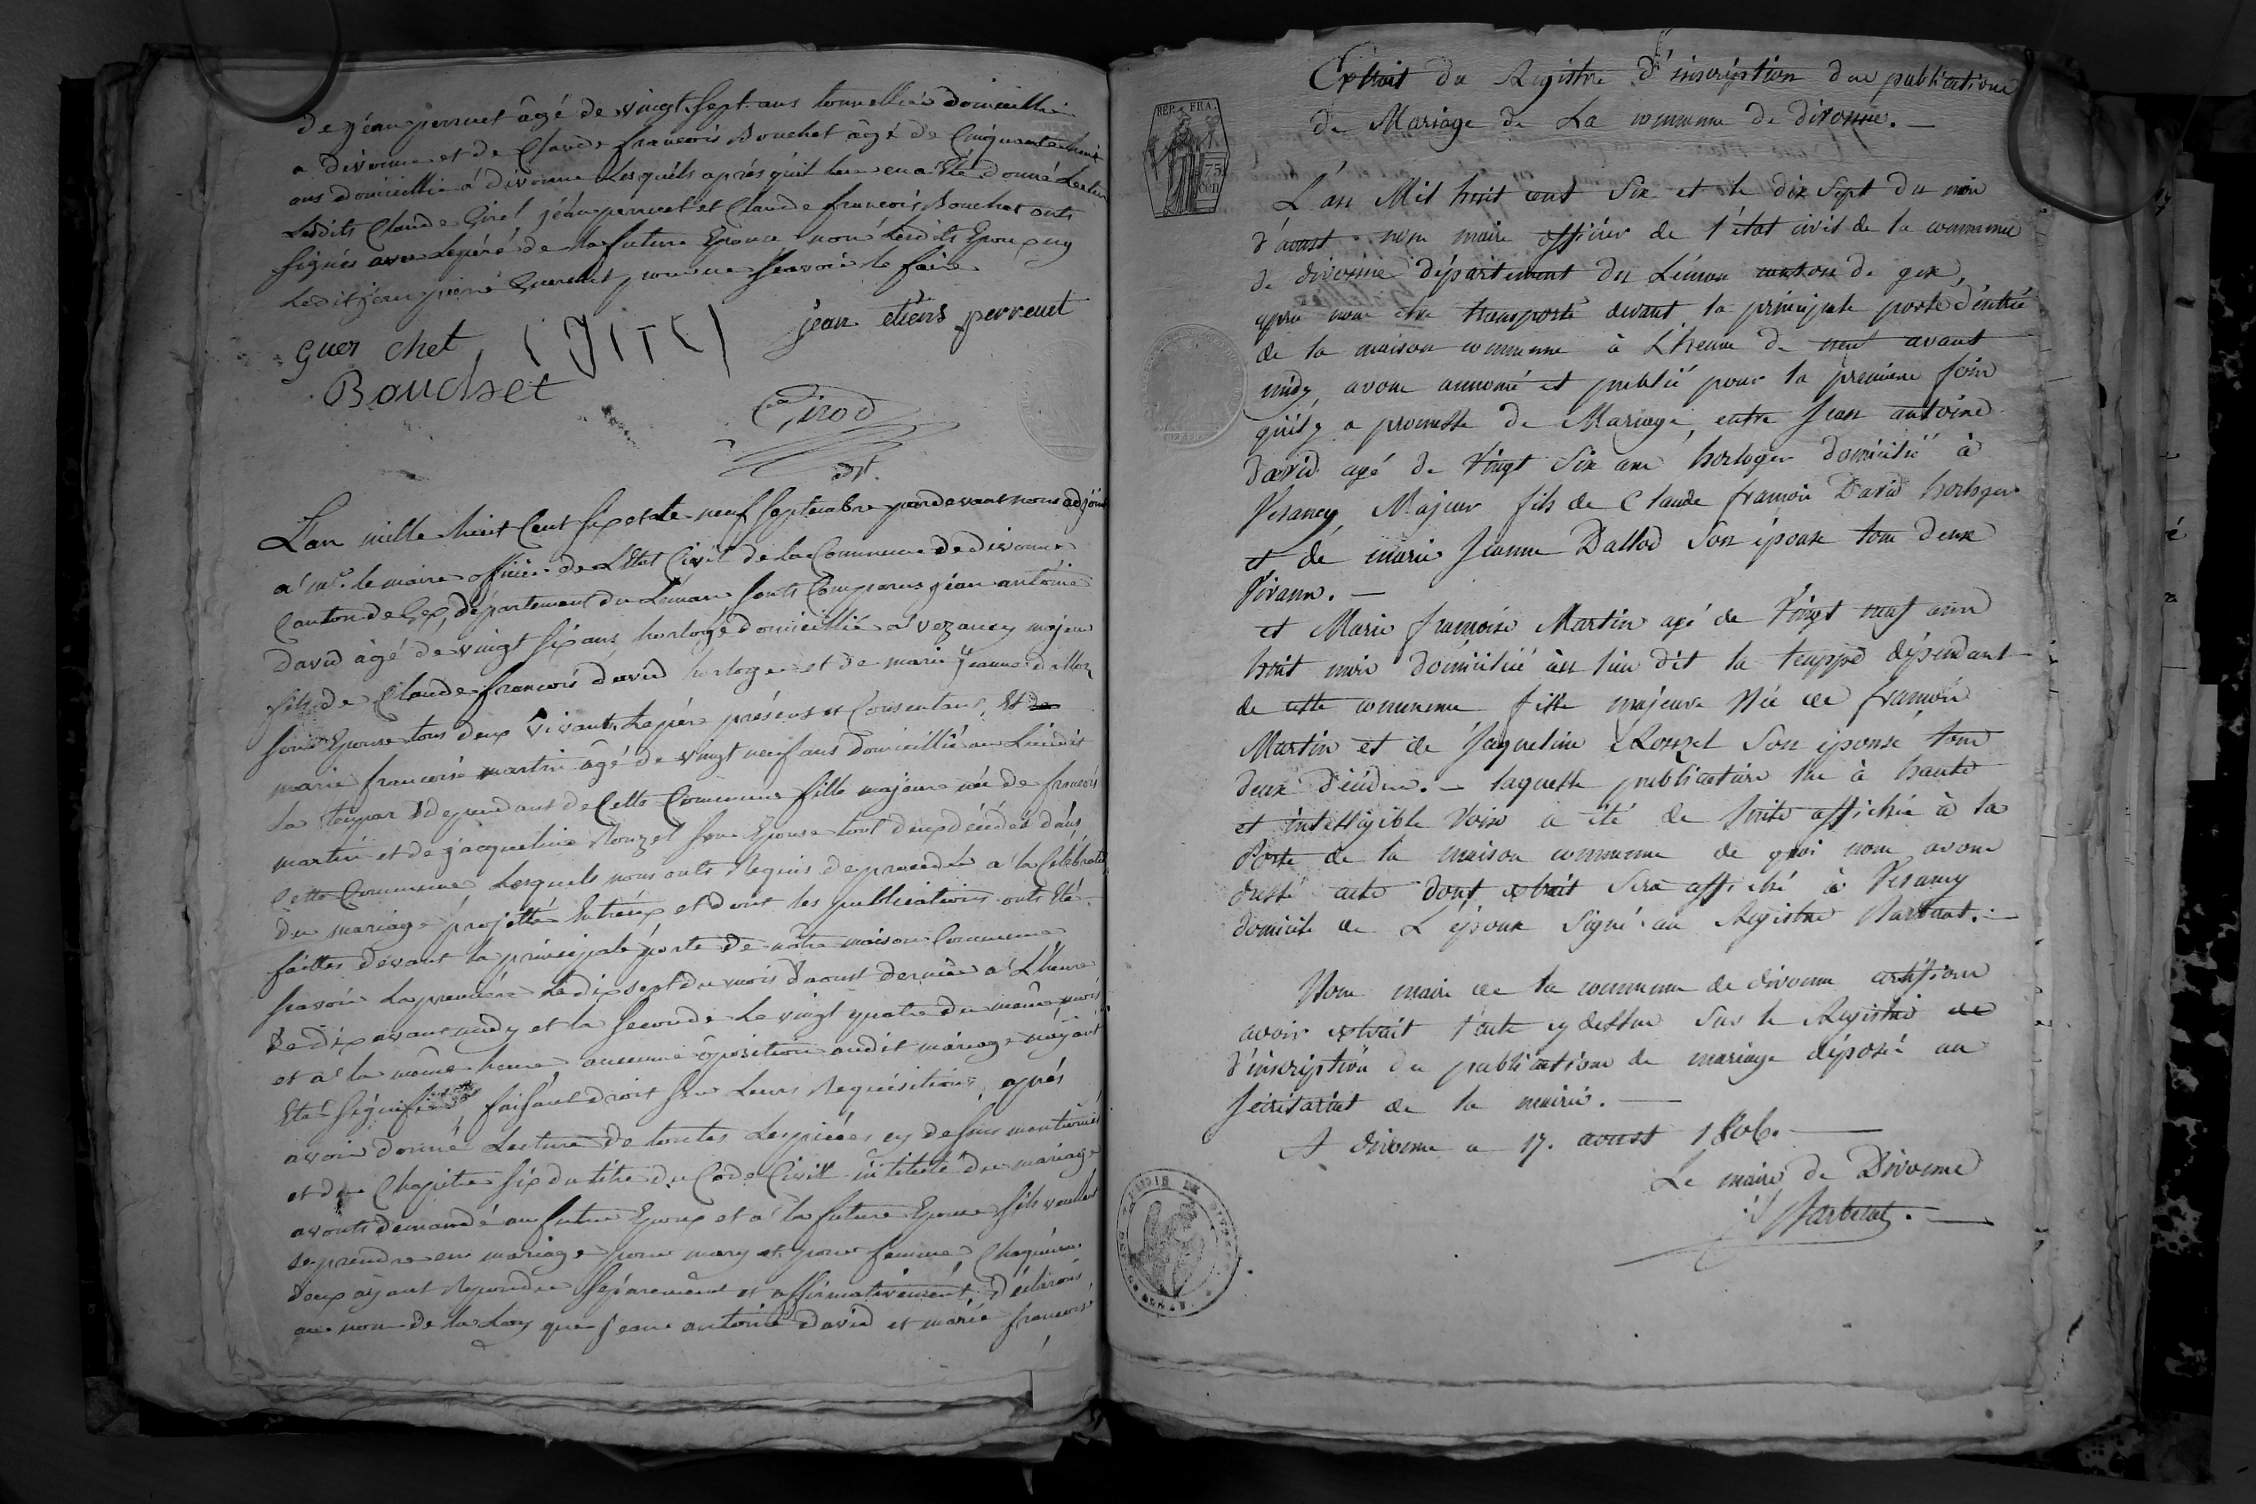 de jéan perruet âgé de vingt sept ans tonnellier domicillié
a divonne et de Claude francois Bouchet âgé de Cinquante huit
ans domicillié a divonne lesquéls aprés qu'il leur en a été donné Lecture
Lesdits Claude Girel jéan perruet et Claude francois Bouchet onts
signés avec le péré de la future Epouse non lesdits Epoux ny
Ledit jéan pierre Guerchet pour ne sçavoir le faire
guer chet
jean etiens perreuet
Bouchet
Girod
adjt.
L'an mille huit Cent six et le neuf septembre pardevant nous adjoint
a mr. le maire officier de L'Etat Civil de la Commune de divonne
Canton de Gex, département du Léman sonts Comparus jéan antoine
David âgé de vingt six ans horloger domicillié a vezancy majeur
fils de Claude francois david horloger et de marie jeanne dalloz
son Epouse tous deux vivants, le pére présent et Consentant, Et de
marie francoise martin âgé de vingt neuf ans domicillié au Lieudit
la teupax dépendant de Cette Commune fille majeure née de francois
martin et de jacqueline Rouzet son Epouse tout deux décédés dans
Cette Commune Lesquels nous onts Requis de procéder a la Célébration
du mariage projetté Entréux et dont les publications onts été
faittes devant la principale porte de nôtre maison Commune
sçavoir la premiére le dix sept du mois d'aoust dernier a L'heure
de dix avant midy et la seconde le vingt quatre du même mois
et a la même heure aucunne opposition audit mariage n'ayant
Eté signifié faisant droit sur leurs Requisitions, aprés
avoir donné Lecture de toutes les piéces cy dessus mentionnés
et du Chapitre six du titre du Code Civil intitulé du mariage
avonts demandé au futur Epoux et a la future Epouse s'ils veullent
se prendre en mariage pour mary et pour femme, Chaqu'un
deux ayant Repondu séparement et affirmativement, déclarons
au nom de la Loy que jean antoine david et marie francoise
Extrait du Registre d'inscription due publications
de Mariage de La commune de divonne. —
REP. FRA.
75
CEN
L'an Mil huit cent Six et le dix sept du mois
d'aoust nous maire officier de l'état civil de la commune
de divonne département du Léman canton de gex,
après nous être transporté devant la principale porte d'entrée
de la maison commune à L'heure de neuf avant
midy, avons annoncé et publié pour la première fois
qu'il y a promesse de Mariage, entre Jean antoine
david agé de Vingt Six ans horloger domicilié à
Vesancy, Majeur fils de Claude françois David horloger
et de marie Jeanne Dallod son épouse tous deux
Vivans. —
et Marie françoise Martin agé de Vingt neuf ans
huit mois domiciliée au lieu dit la teuppe dépendant
de cette commune fille majeure Née de françois
Martin et de Jaqueline Rouzet son épouse tous
deux décédés. — laquelle publication lue à haute
et intelligible Voix a été de suite affichée à la
Porte de la maison commune de quoi nous avons
dressé acte dont extrait sera affiché à Vesancy
domicile de L'époux signé au Registre Barberat. —
Nous maire de la commune de divonne certifions
avoir extrait l'acte cy dessus sur le Registre de
d'inscription des publications de mariage déposé au
Sécrétariat de la mairie. —
A divonne ce 17. aoust 1806. —
Le maire de Divonne
Barberat. —